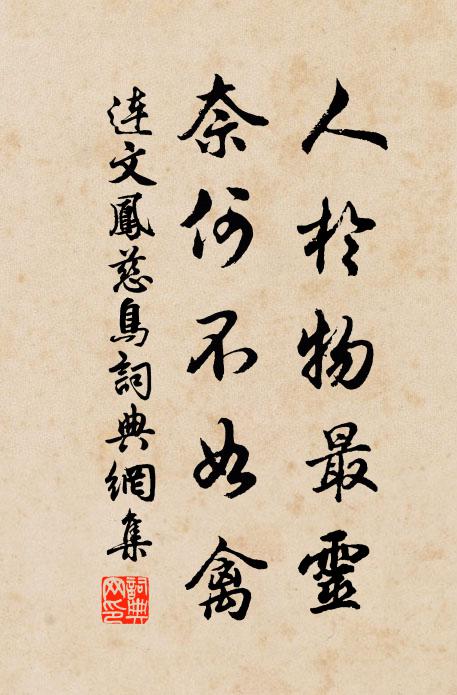 人於物最靈
奈何不如禽
連文鳳慈烏詞典網集
詞典網印